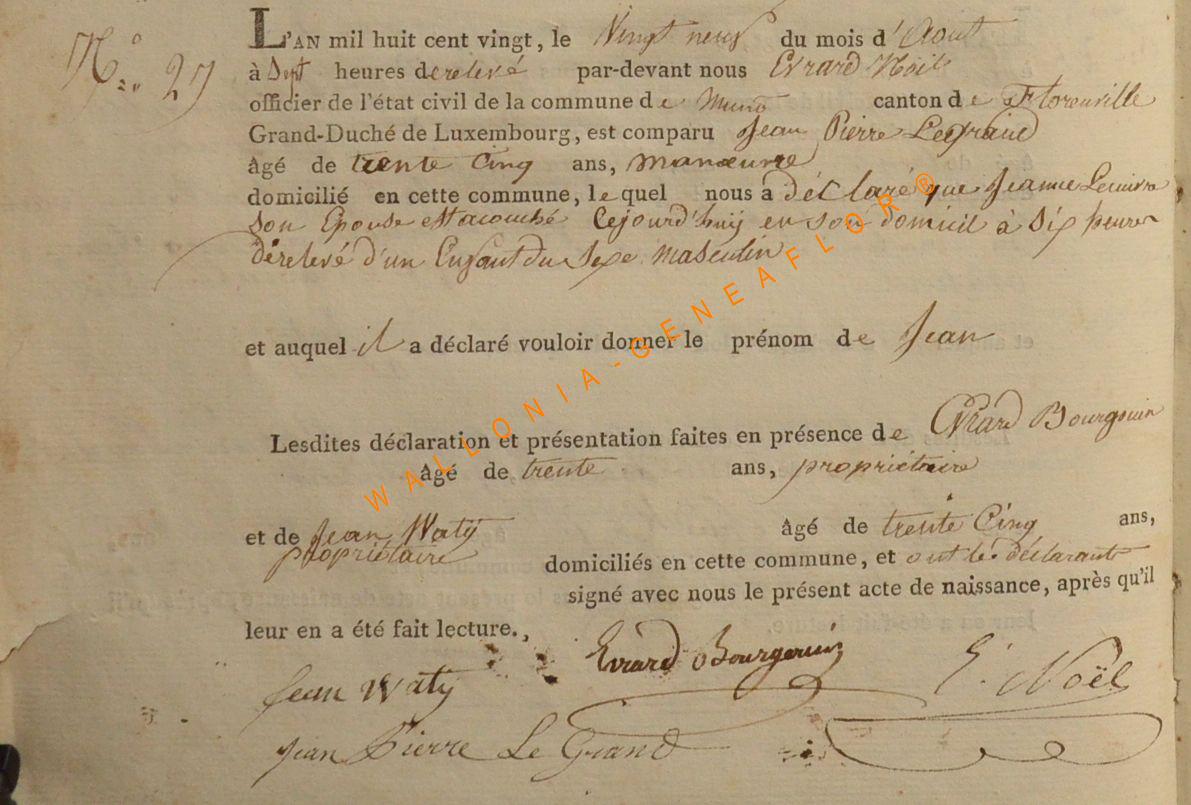 N.° 27
L'AN mil huit cent vingt, le Vingt neuf du mois d'Aout
à Sept heures de relevé par-devant nous Evrard Noël
officier de l'état civil de la commune de Muno canton de Florenville
Grand-Duché de Luxembourg, est comparu Jean Pierre Legrand
âgé de trente Cinq ans, manœuvre
domicilié en cette commune, lequel nous a déclaré que Jeanne
son Epouse est acouché Cejourd'huij en son domicil à Six heures
de relevé d'un Enfant du Sexe Masculin
et auquel il a déclaré vouloir donner le prénom de Jean
Lesdites déclaration et présentation faites en présence de Evrard Bourgouin
âgé de trente ans, propriétaire
et de Jean Watÿ âgé de trente Cinq ans,
propriétaire domiciliés en cette commune, et ont les déclarants
signé avec nous le présent acte de naissance, après qu'il
leur en a été fait lecture.
Evrard Bourgouin
E. Noël
Jean Watÿ
Jean Pierre Le Grand
WALLONIA-GENEAFLOR®